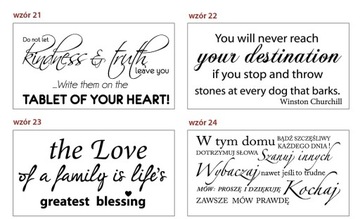 wzór 21
Do not let
kindness & truth
leave you
...Write them on the
TABLET OF YOUR HEART!
wzór 22
You will never reach
your destination
if you stop and throw
stones at every dog that barks.
Winston Churchill
wzór 23
the Love
of a family is life's
greatest blessing
wzór 24
W tym domu BĄDŹ SZCZĘŚLIWY
KAŻDEGO DNIA!
DOTRZYMUJ SŁOWA Szanuj innych
Wybaczaj nawet jeśli to trudne
MÓW: PROSZĘ I DZIĘKUJĘ Kochaj
ZAWSZE MÓW PRAWDĘ